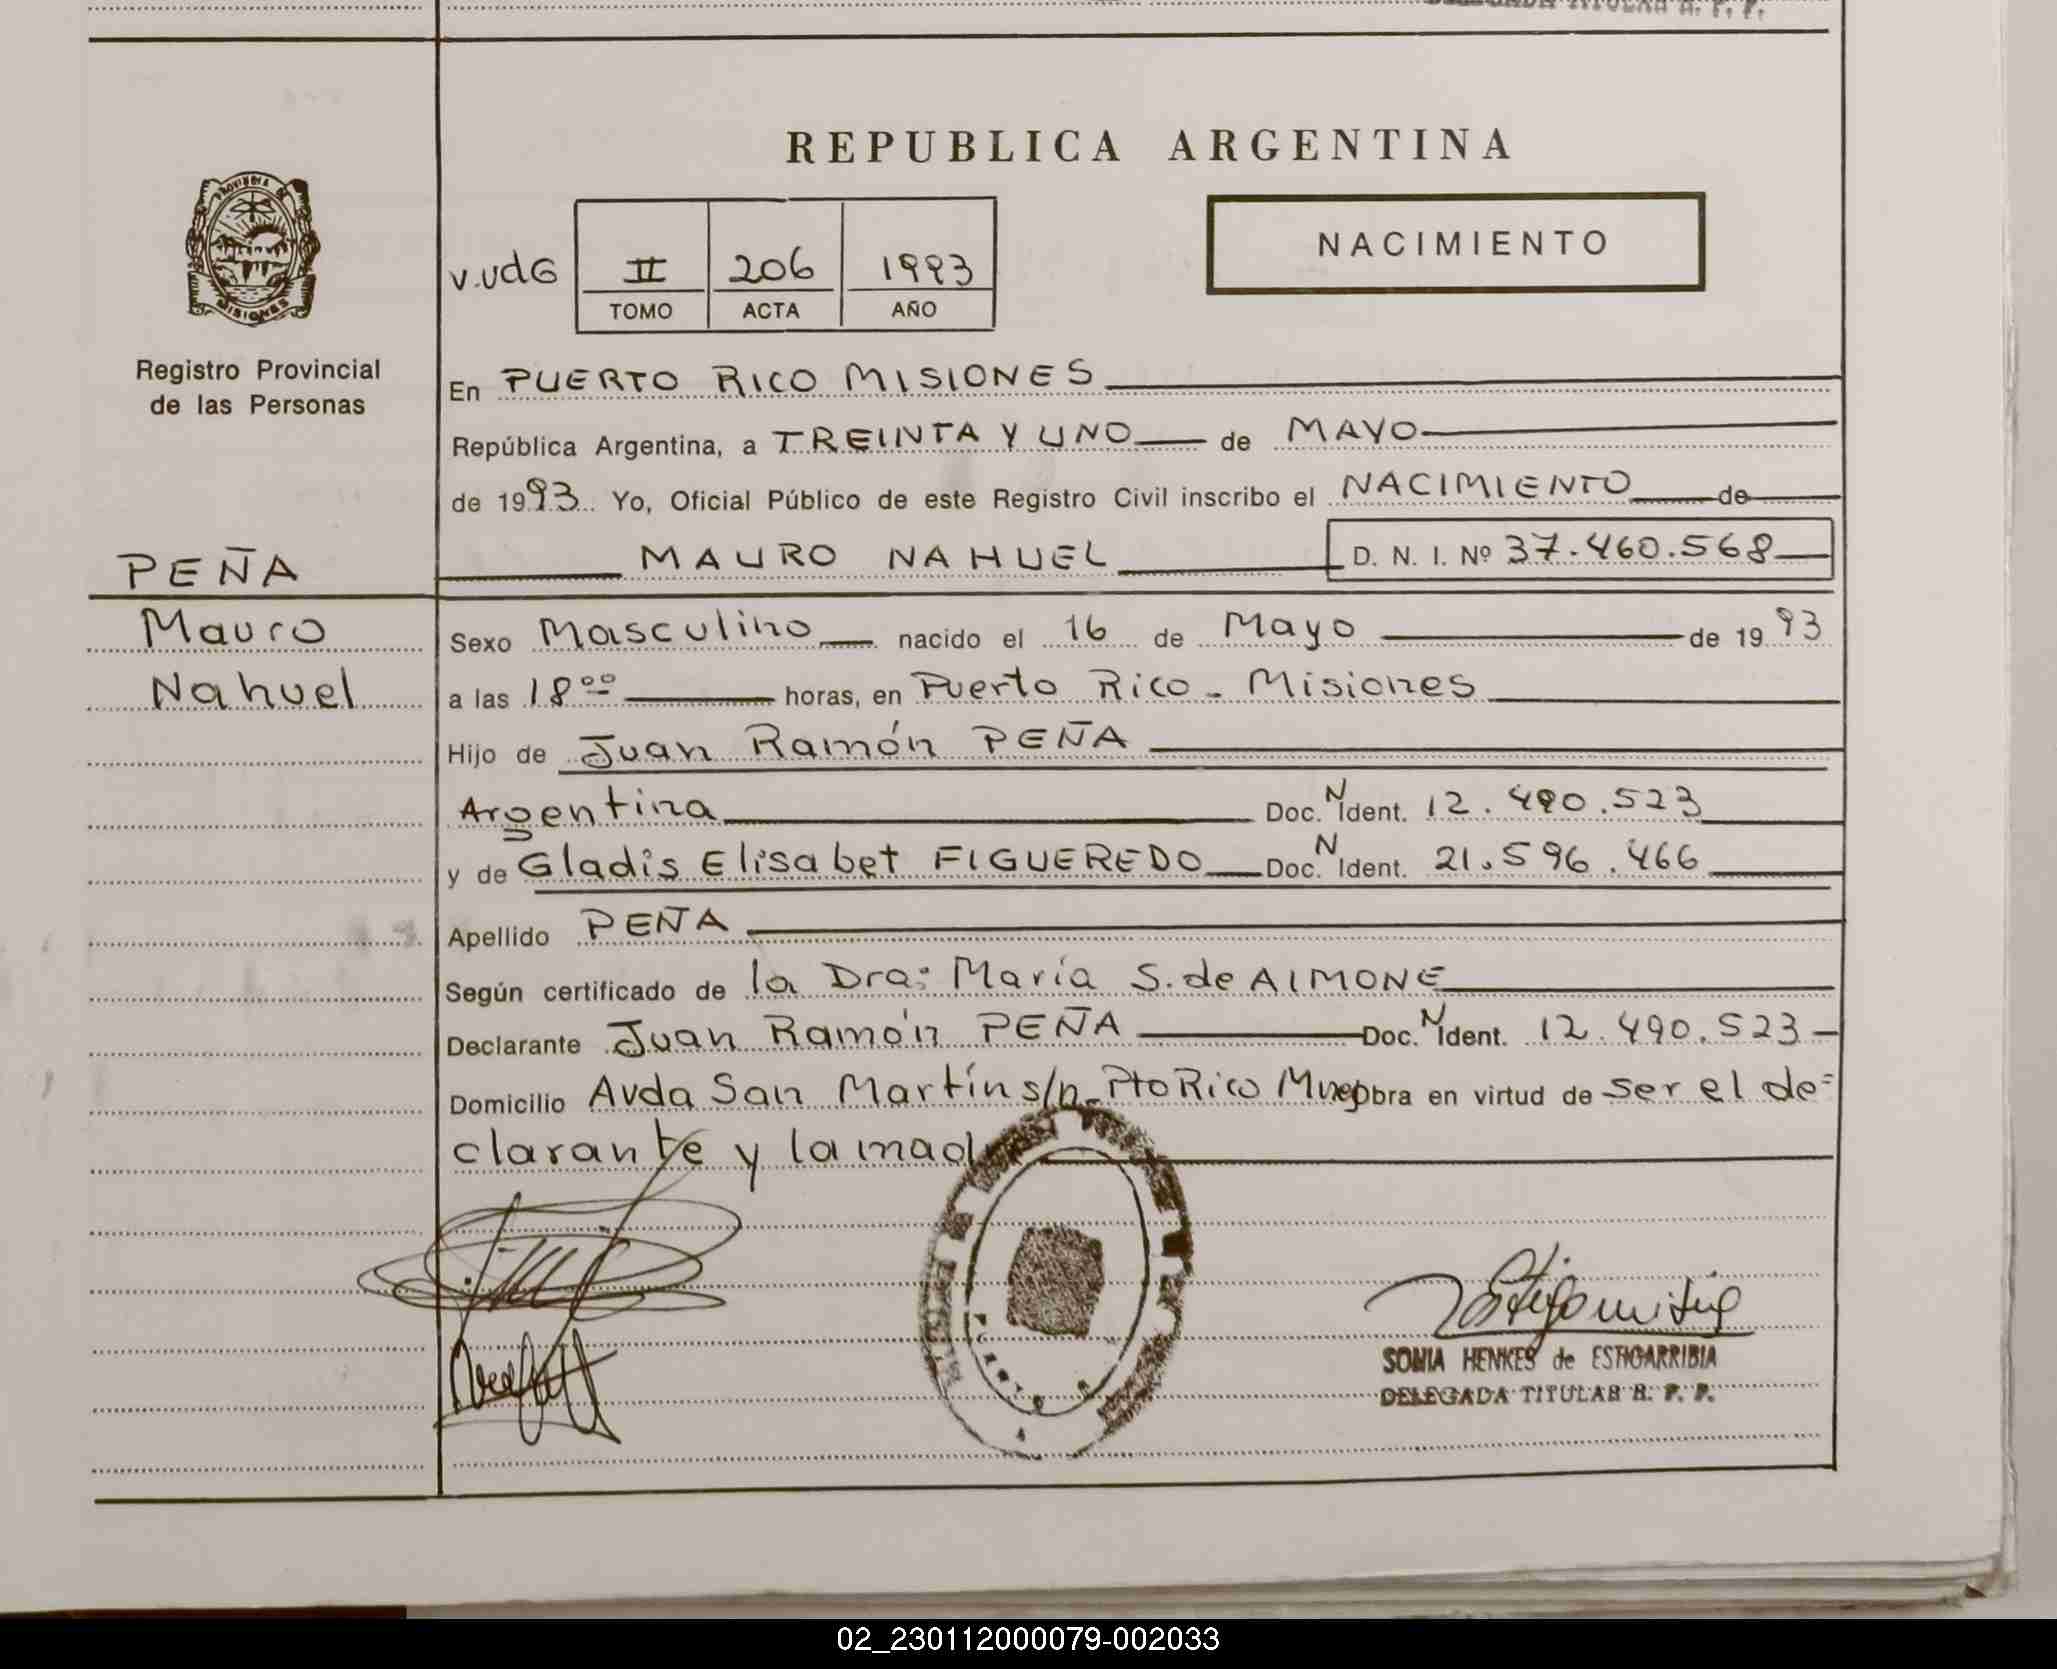 DELEGADA TITULAR R. P. P.
REPUBLICA ARGENTINA
PROVINCIA DE
MISIONES
NACIMIENTO
V.UdG II 206 1993
TOMO ACTA AÑO
Registro Provincial
de las Personas
En PUERTO RICO MISIONES
República Argentina, a TREINTA Y UNO de MAYO
de 1993 Yo, Oficial Público de este Registro Civil inscribo el NACIMIENTO de
PEÑA
MAURO NAHUEL D. N. I. Nº 37.460.568
Mauro
Nahuel
Sexo Masculino nacido el 16 de Mayo de 1993
a las 18⁰⁰ horas, en Puerto Rico - Misiones
Hijo de Juan Ramón PEÑA
Argentina Doc. N Ident. 12.490.523
y de Gladis Elisabet FIGUEREDO Doc. N Ident. 21.596.466
Apellido PEÑA
Según certificado de la Dra: María S. de AIMONE
Declarante Juan Ramón PEÑA Doc. N Ident. 12.490.523
Domicilio Avda San Martín s/n - Pto Rico Mnes obra en virtud de ser el de=
clarante y la mad
SONIA HENKES de ESTIGARRIBIA
DELEGADA TITULAR R. P. P.
02_230112000079-002033